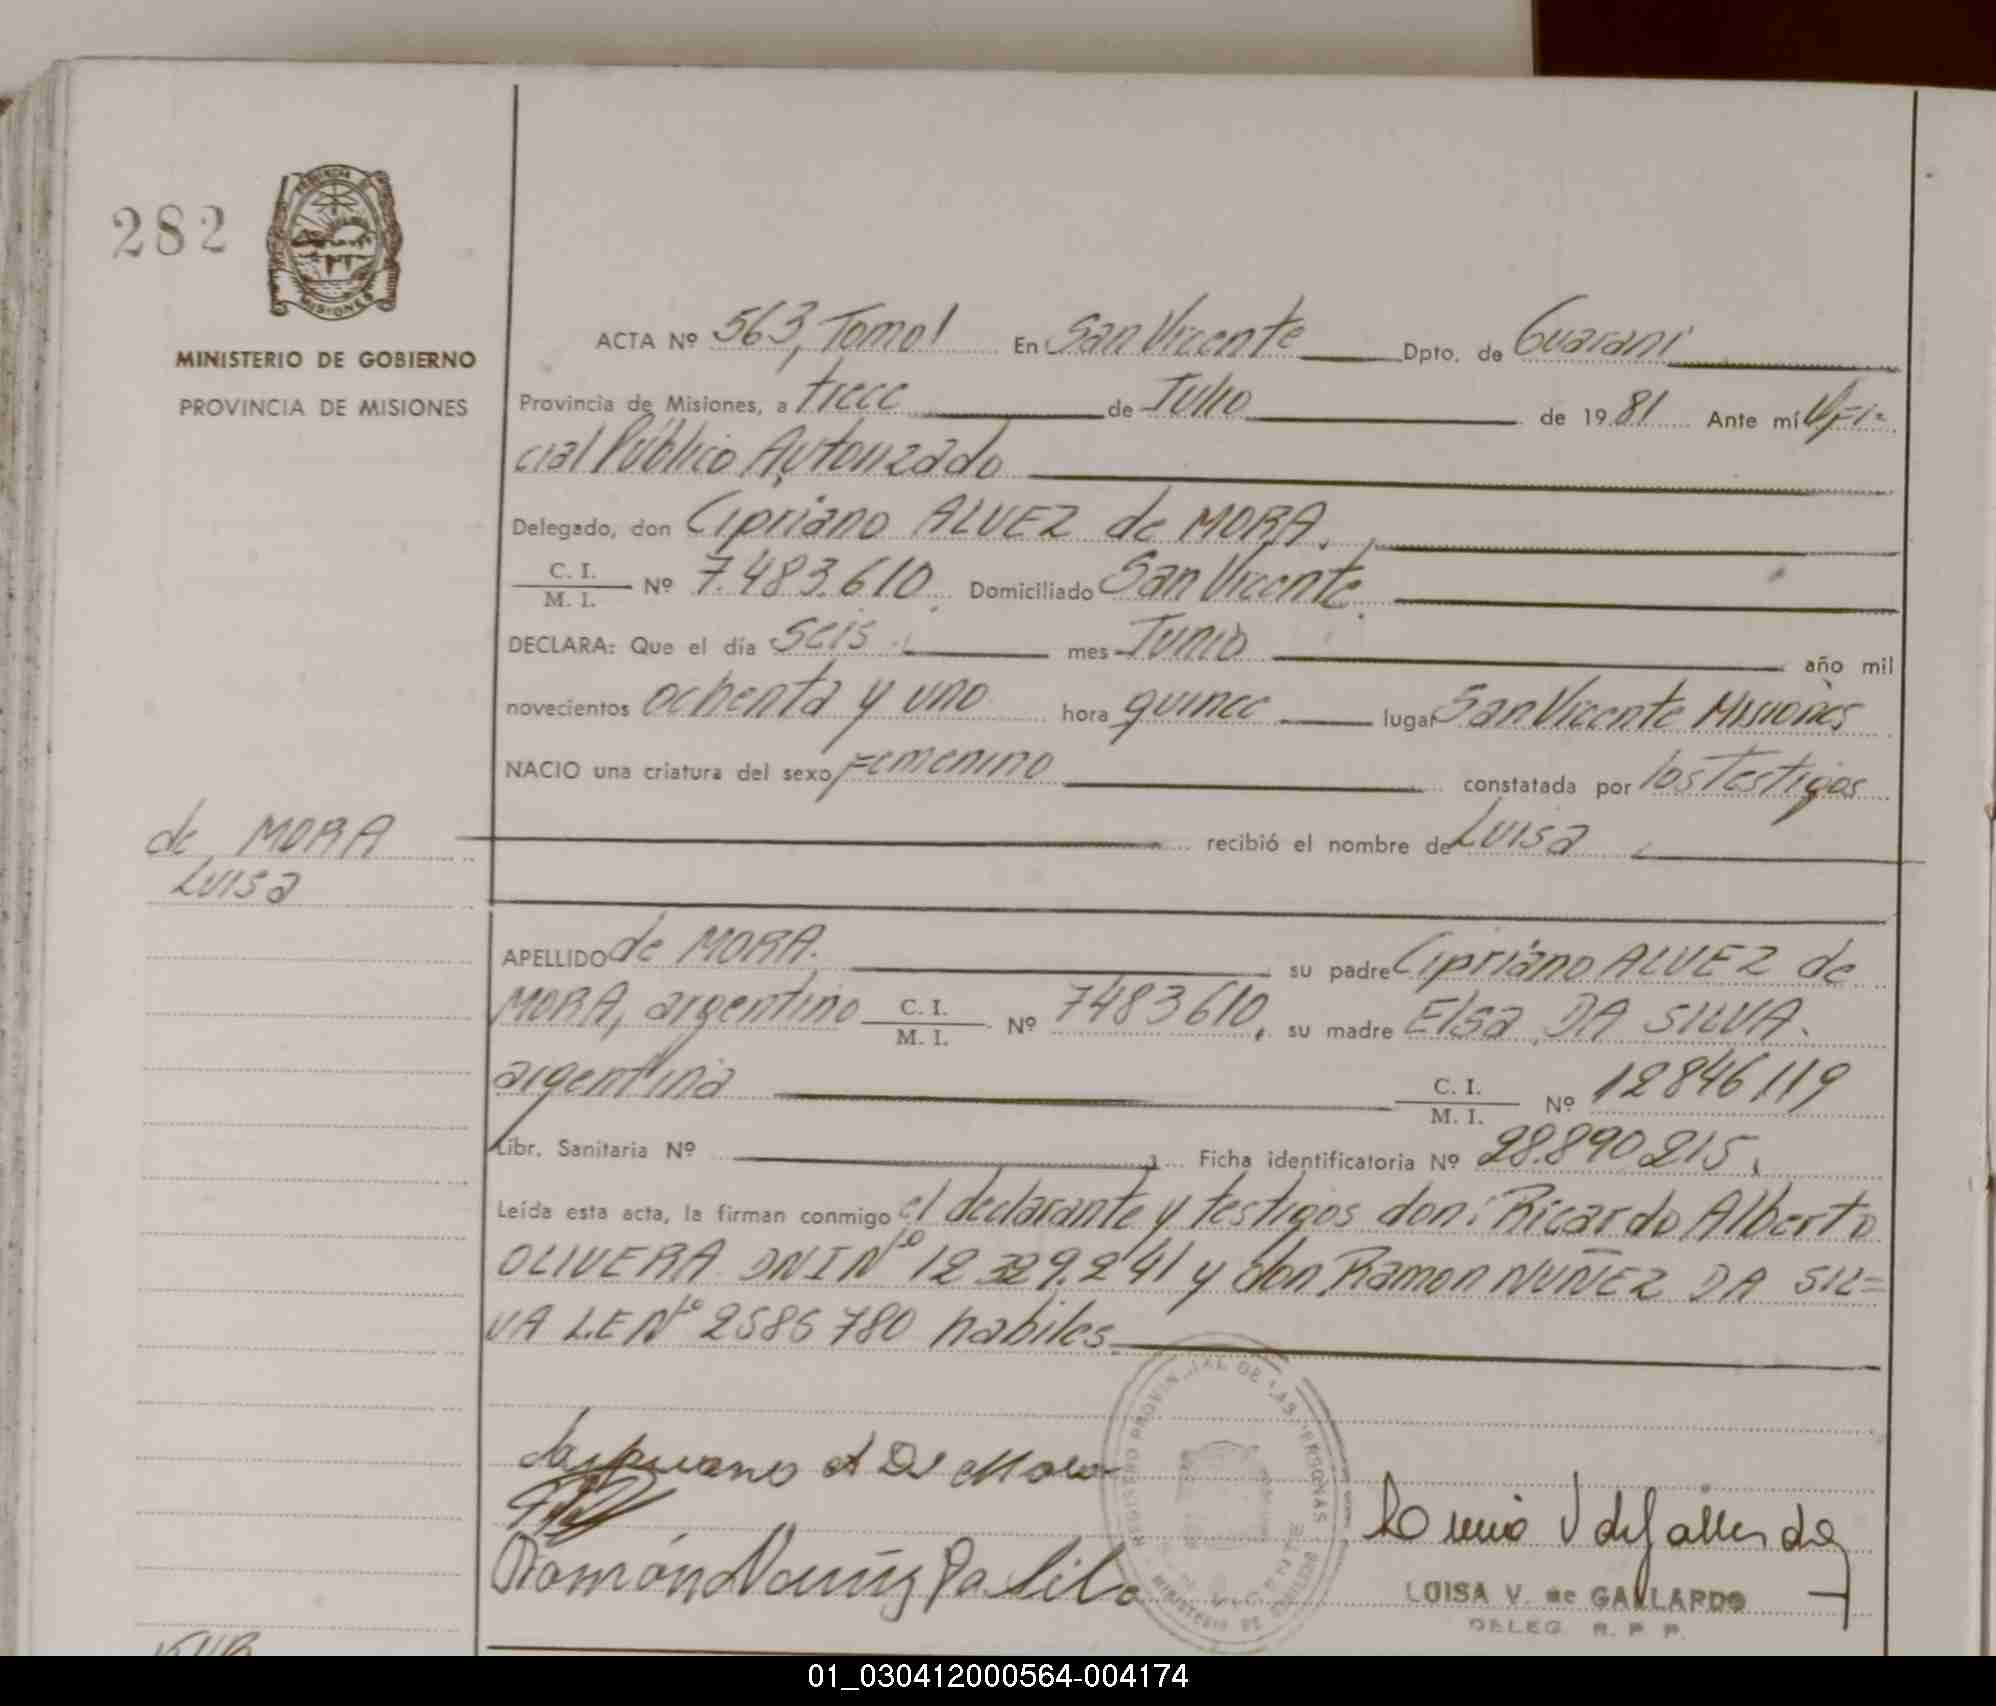 282
PROVINCIA DE
MISIONES
MINISTERIO DE GOBIERNO
PROVINCIA DE MISIONES
ACTA Nº 563, Tomo I En San Vicente Dpto. de Guaraní
Provincia de Misiones, a trece de Julio de 1981 Ante mí Ofi-
cial Público Autorizado
Delegado, don Cipriano ALVEZ de MORA.
C. I.
M. I. Nº 7.483.610. Domiciliado San Vicente.
DECLARA: Que el día seis mes Junio año mil
novecientos ochenta y uno hora quince lugar San Vicente Misiones
NACIO una criatura del sexo Femenino constatada por los Testigos
de MORA recibió el nombre de Luisa
Luisa
APELLIDO de MORA. su padre Cipriano ALVEZ de
MORA, argentino C. I.
M. I. Nº 7483610, su madre Elsa DA SILVA.
argentina C. I.
M. I. Nº 12846119
Libr. Sanitaria Nº Ficha identificatoria Nº 28.890.215.
Leída esta acta, la firman conmigo el declarante y testigos don: Ricardo Alberto
OLIVERA DNI Nº 12.329.241 y don Ramon NUÑEZ DA SIL=
VA L.E Nº 2586780 habiles.
REGISTRO PROVINCIAL DE LAS PERSONAS
Ramón Nuñez Da Silva
LUISA V. de GALLARDO
DELEG. R. P. P.
01_030412000564-004174